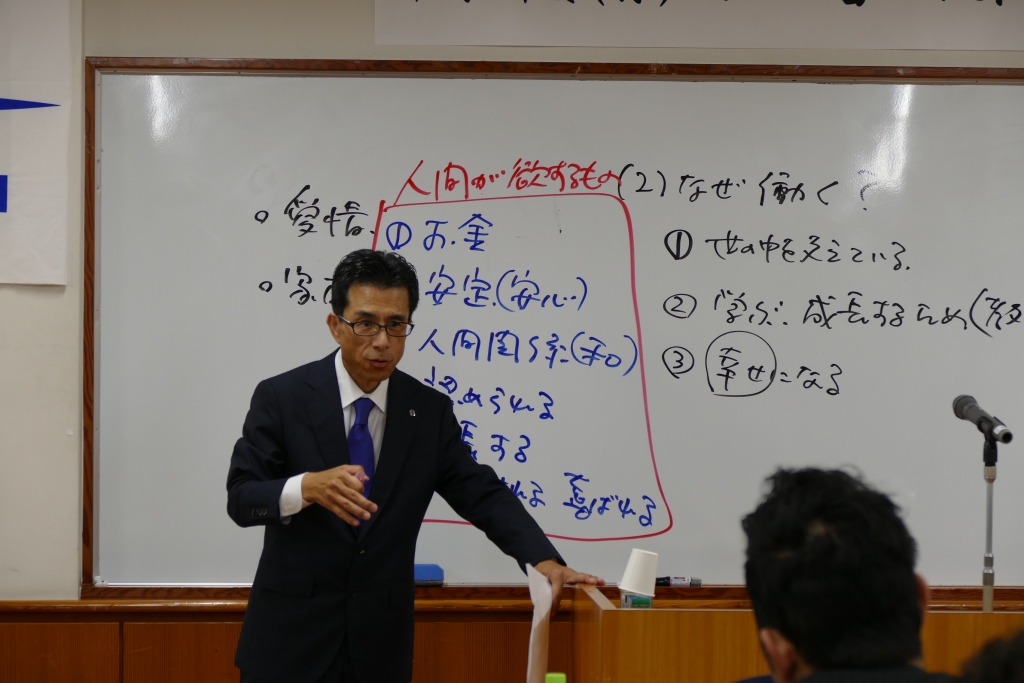 人間が欲するもの
。愛情、
①お金
安定(安心)
人間関係(和)
認められる
長する
れる 喜ばれる
(2)なぜ働く?
①世の中を支えている。
②学ぶ:成長するため(
③幸せになる